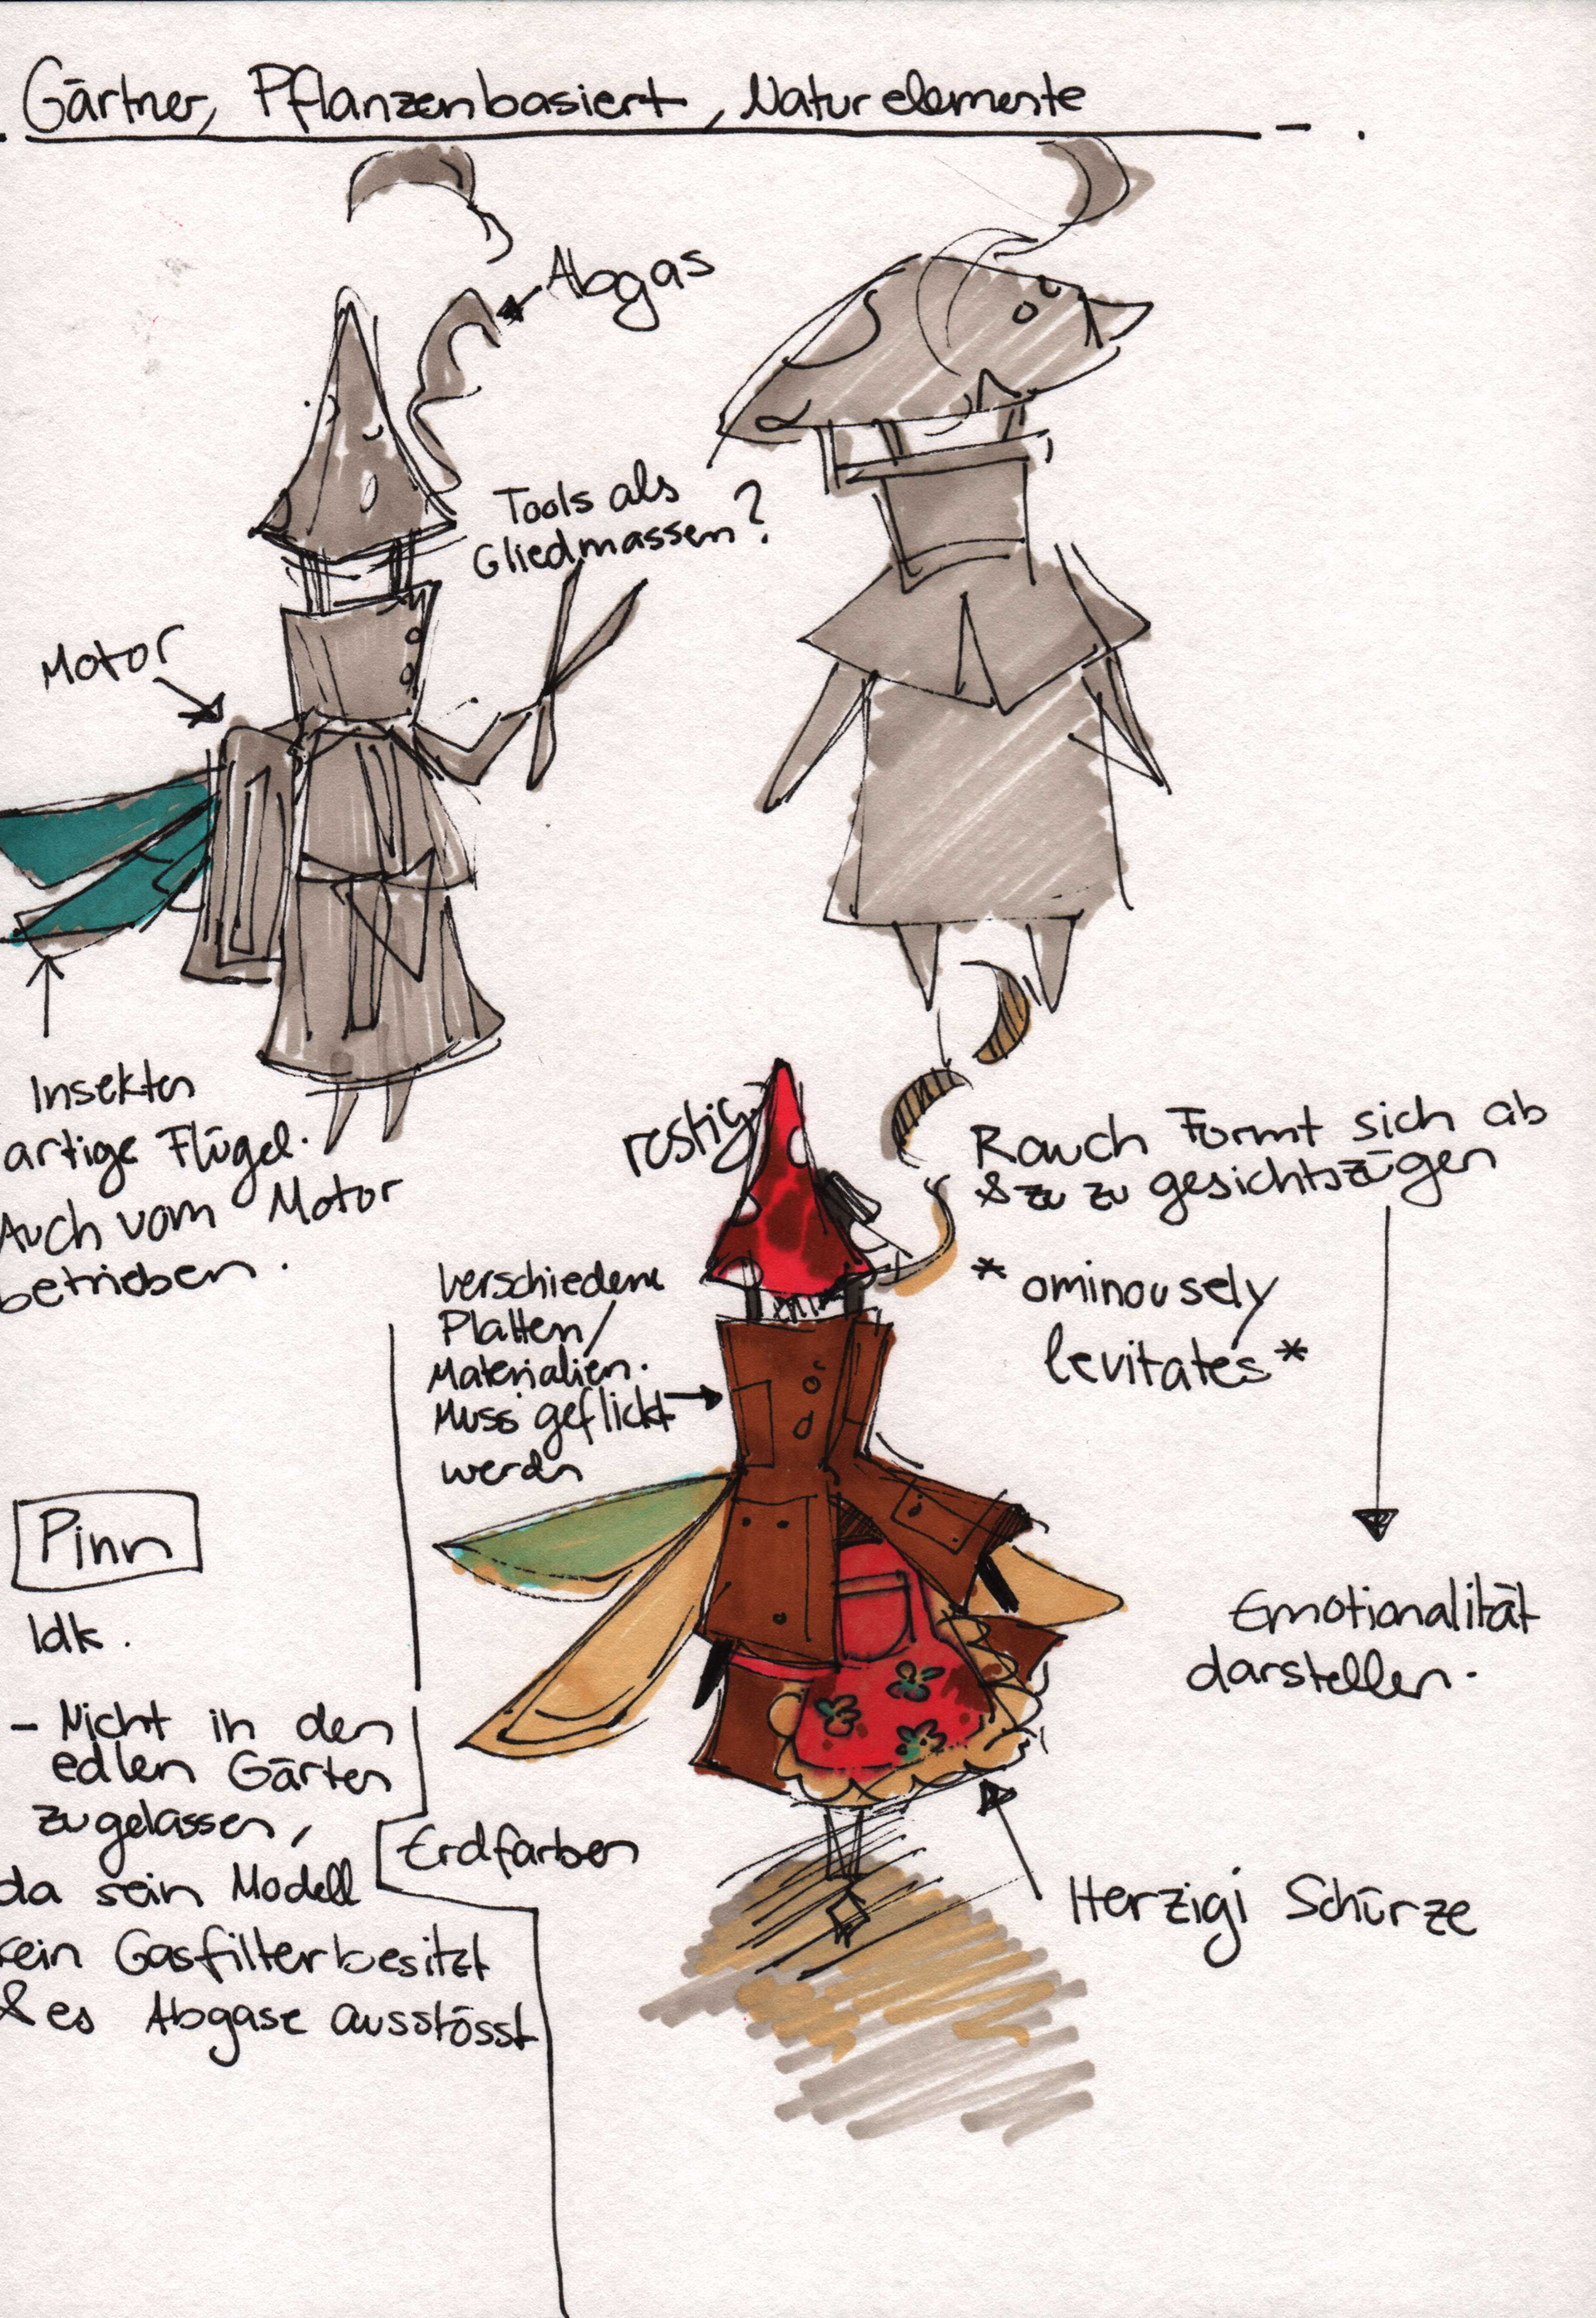 Gärtner, Pflanzenbasiert, Naturelemente
Abgas
Tools als
Gliedmassen?
Motor
Insekten
artige Flügel.
Auch vom Motor
betrieben.
rostig
Rauch Formt sich ab
& zu zu gesichtszügen
*ominousely
levitates*
Emotionalität
darstellen.
Verschiedene
Platten/
Materialien.
Muss geflickt
werdn
Pinn
Idk.
- Nicht in den
edlen Gärten
zugelassen,
da sein Modell
kein Gasfilter besitzt
& es Abgase ausstösst
Erdfarben
Herzigi Schürze